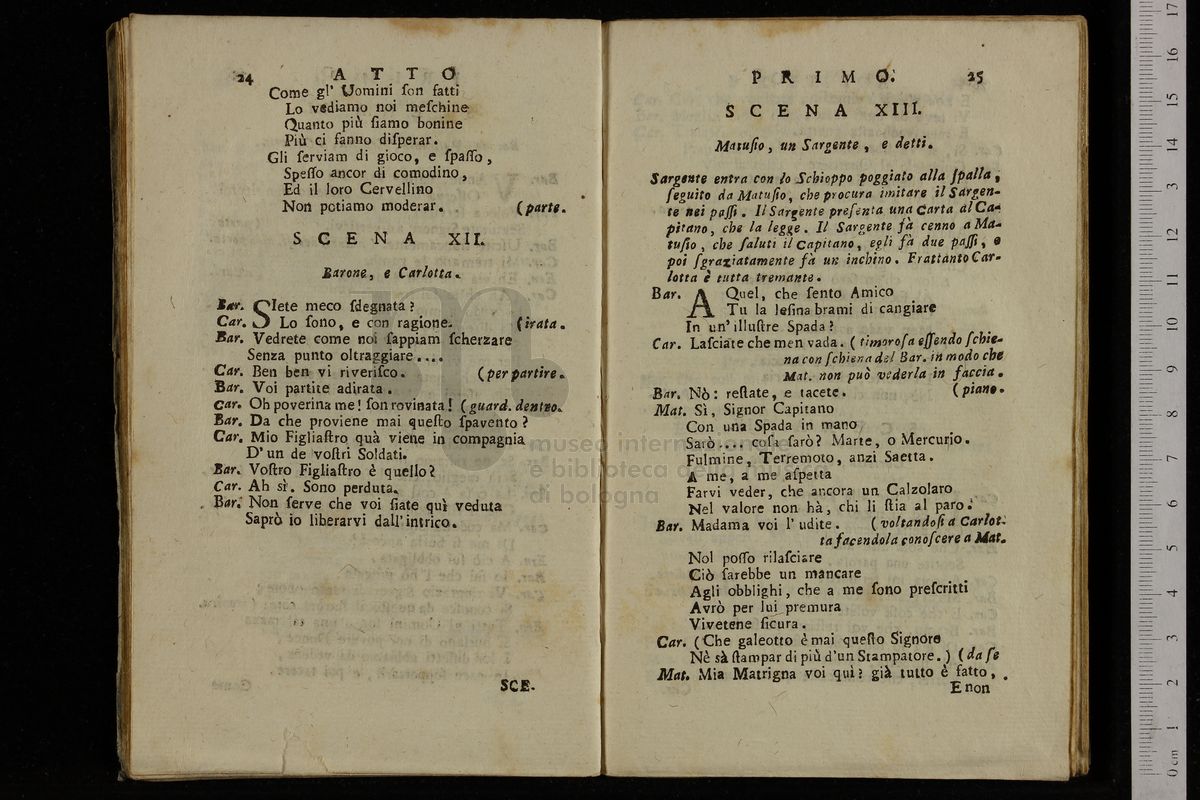 24 ATTO
Come gl' Uomini ſon fatti
Lo vediamo noi meſchine
Quanto più ſiamo bonine
Più ci fanno diſperar.
Gli ſerviam di gioco, e ſpaſſo,
Speſſo ancor di comodino,
Ed il loro Cervellino
Non potiamo moderar. (parte.
SCENA XII.
Barone, e Carlotta.
Bar. SIete meco ſdegnata?
Car. Lo ſono, e con ragione. (irata.
Bar. Vedrete come noi ſappiam ſcherzare
Senza punto oltraggiare....
Car. Ben ben vi riveriſco. (per partire.
Bar. Voi partite adirata.
Car. Oh poverina me! ſon rovinata! (guard. dentro.
Bar. Da che proviene mai queſto ſpavento?
Car. Mio Figliaſtro quà viene in compagnia
D'un de voſtri Soldati.
Bar. Voſtro Figliaſtro è quello?
Car. Ah sì. Sono perduta.
Bar. Non ſerve che voi ſiate quì veduta
Saprò io liberarvi dall'intrico.
SCE.
PRIMO. 25
SCENA XIII.
Matuſio, un Sargente, e detti.
Sargente entra con lo Schioppo poggiato alla ſpalla,
ſeguito da Matuſio, che procura imitare il Sargen-
te nei paſſi. Il Sargente preſenta una Carta al Ca-
pitano, che la legge. Il Sargente fà cenno a Ma-
tuſio, che ſaluti il Capitano, egli fà due paſſi, e
poi ſgraziatamente fà un inchino. Frattanto Car-
lotta è tutta tremante.
Bar. A Quel, che ſento Amico
Tu la leſina brami di cangiare
In un' illuſtre Spada?
Car. Laſciate che men vada. (timoroſa eſſendo ſchie-
na con ſchiena del Bar. in modo che
Mat. non può vederla in faccia.
Bar. Nò: reſtate, e tacete. (piano.
Mat. Sì, Signor Capitano
Con una Spada in mano
Sarò.... coſa ſarò? Marte, o Mercurio.
Fulmine, Terremoto, anzi Saetta.
A me, a me aſpetta
Farvi veder, che ancora un Calzolaro
Nel valore non hà, chi li ſtia al paro.
Bar. Madama voi l'udite. (voltandoſi a Carlot-
ta facendola conoſcere a Mat.
Nol poſſo rilaſciare
Ciò ſarebbe un mancare
Agli obblighi, che a me ſono preſcritti
Avrò per lui premura
Vivetene ſicura.
Car. (Che galeotto è mai queſto Signore
Nè sà ſtampar di più d'un Stampatore.) (da ſe
Mat. Mia Matrigna voi quì? già tutto è fatto,
E non
museo internazionale
e biblioteca della musica
di bologna